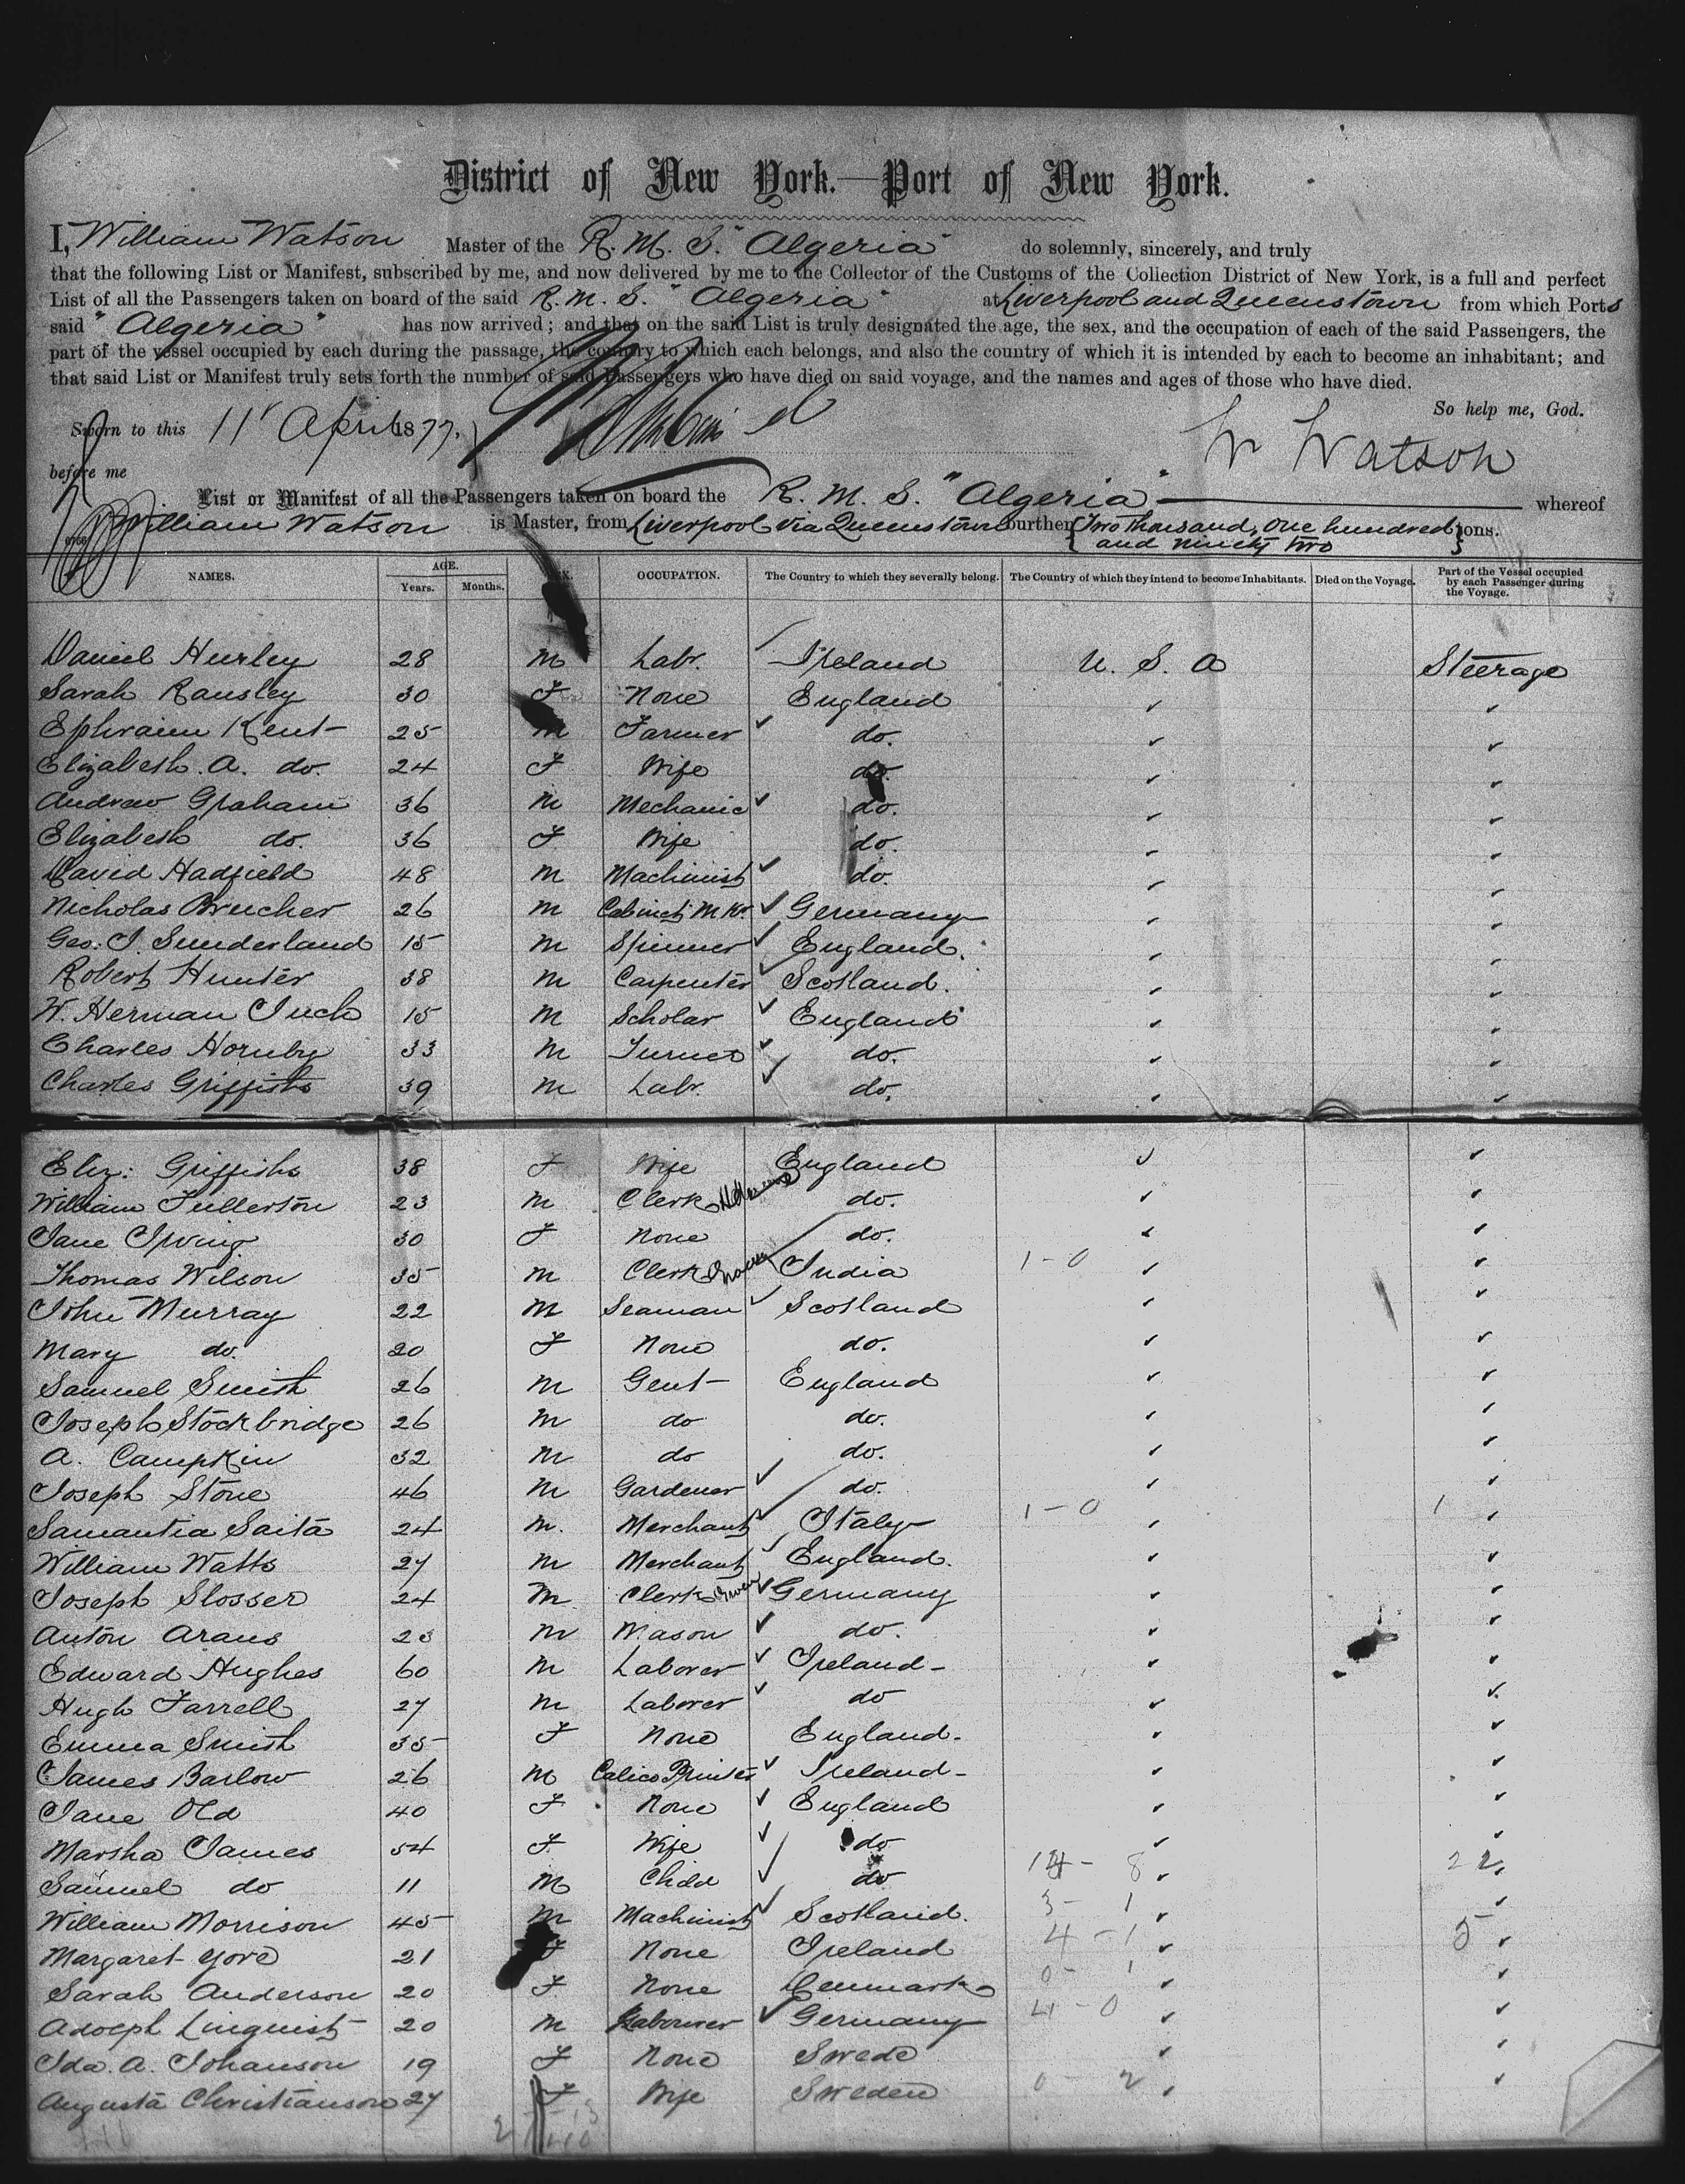 District of New York.—Port of New York.
I, William Watson Master of the R. M. S. "Algeria" do solemnly, sincerely, and truly
that the following List or Manifest, subscribed by me, and now delivered by me to the Collector of the Customs of the Collection District of New York, is a full and perfect
List of all the Passengers taken on board of the said R. M. S. "Algeria" at Liverpool and Queenstown from which Ports
said "Algeria" has now arrived; and that on the said List is truly designated the age, the sex, and the occupation of each of the said Passengers, the
part of the vessel occupied by each during the passage, the country to which each belongs, and also the country of which it is intended by each to become an inhabitant; and
that said List or Manifest truly sets forth the number of said Passengers who have died on said voyage, and the names and ages of those who have died.
So help me, God.
Sworn to this 11' April 1877,
W Watson
before me
List or Manifest of all the Passengers taken on board the R. M. S. "Algeria" whereof
William Watson is Master, from Liverpool via Queenstown burthen {Two thousand, one hundred} tons.
and ninety two
NAMES. AGE. Years. Months. OCCUPATION. The Country to which they severally belong. The Country of which they intend to become Inhabitants. Died on the Voyage. Part of the Vessel occupied by each Passenger during the Voyage.
Daniel Hurley 28 M Labr. Ireland U. S. A Steerage
Sarah Ransley 30 F None England ✓ ✓
Ephraim Kent 25 M Farmer ✓ do. ✓ ✓
Elizabeth. A. do. 24 F Wife do. ✓ ✓
Andrew Graham 36 M Mechanic ✓ do. ✓ ✓
Elizabeth do. 36 F Wife do. ✓ ✓
David Hadfield 48 M Machinist ✓ do. ✓ ✓
Nicholas Brucher 26 M Cabinet Mkr. ✓ Germany ✓ ✓
Geo: Sunderland 15 M Spinner ✓ England. ✓ ✓
Robert Hunter 38 M Carpenter ✓ Scotland. ✓ ✓
W. Herman 15 M Scholar ✓ England ✓ ✓
Charles Hornby 33 M Turner ✓ do. ✓ ✓
Charles Griffiths 39 M Labr. ✓ do. ✓ ✓
Eliz: Griffiths 38 F Wife England ✓ ✓
William Fullerton 23 M Clerk do. ✓ ✓
Jane Irving 30 F None do. ✓ ✓
Thomas Wilson 35 M Clerk India 1-0 ✓ ✓
John Murray 22 M Seaman ✓ Scotland ✓ ✓
Mary do. 20 F None do. ✓ ✓
Samuel Smith 26 M Gent England ✓ ✓
Joseph Stockbridge 26 M do do. ✓ ✓
A. Campkin 32 M do do. ✓ ✓
Joseph Stone 46 M Gardener ✓ do. ✓ ✓
Samantia Saita 24 M. Merchant ✓ Italy 1-0 ✓ 1 ✓
William Watts 27 M Merchant ✓ England. ✓ ✓
Joseph Slosser 24 M Clerk ✓ Germany ✓ ✓
Anton Arans 23 M Mason ✓ do. ✓ ✓
Edward Hughes 60 M Laborer ✓ Ireland ✓ ✓
Hugh Farrell 27 M Laborer ✓ do ✓ ✓
Emma Smith 35 F None England. ✓ ✓
James Barlow 26 M Calico Printer ✓ Ireland ✓ ✓
Jane Old 40 F None ✓ England ✓ ✓
Martha James 54 F Wife ✓ do ✓ ✓
Samuel do 11 M Child ✓ do 14 - 8 ✓ 22
William Morrison 45 M Machinist ✓ Scotland. 3- 1 ✓ ✓
Margaret Gore 21 F None Ireland 4 - 1 ✓ 5 ✓
Sarah Anderson 20 F None Denmark 0- 1 ✓ ✓
Adolph Linquist 20 M Labourer ✓ Germany 4 - 0 ✓ ✓
Ida. A. Johanson 19 F None Swede ✓ ✓
Augusta Christianson 27 F Wife Sweden 0 - 2 ✓ ✓